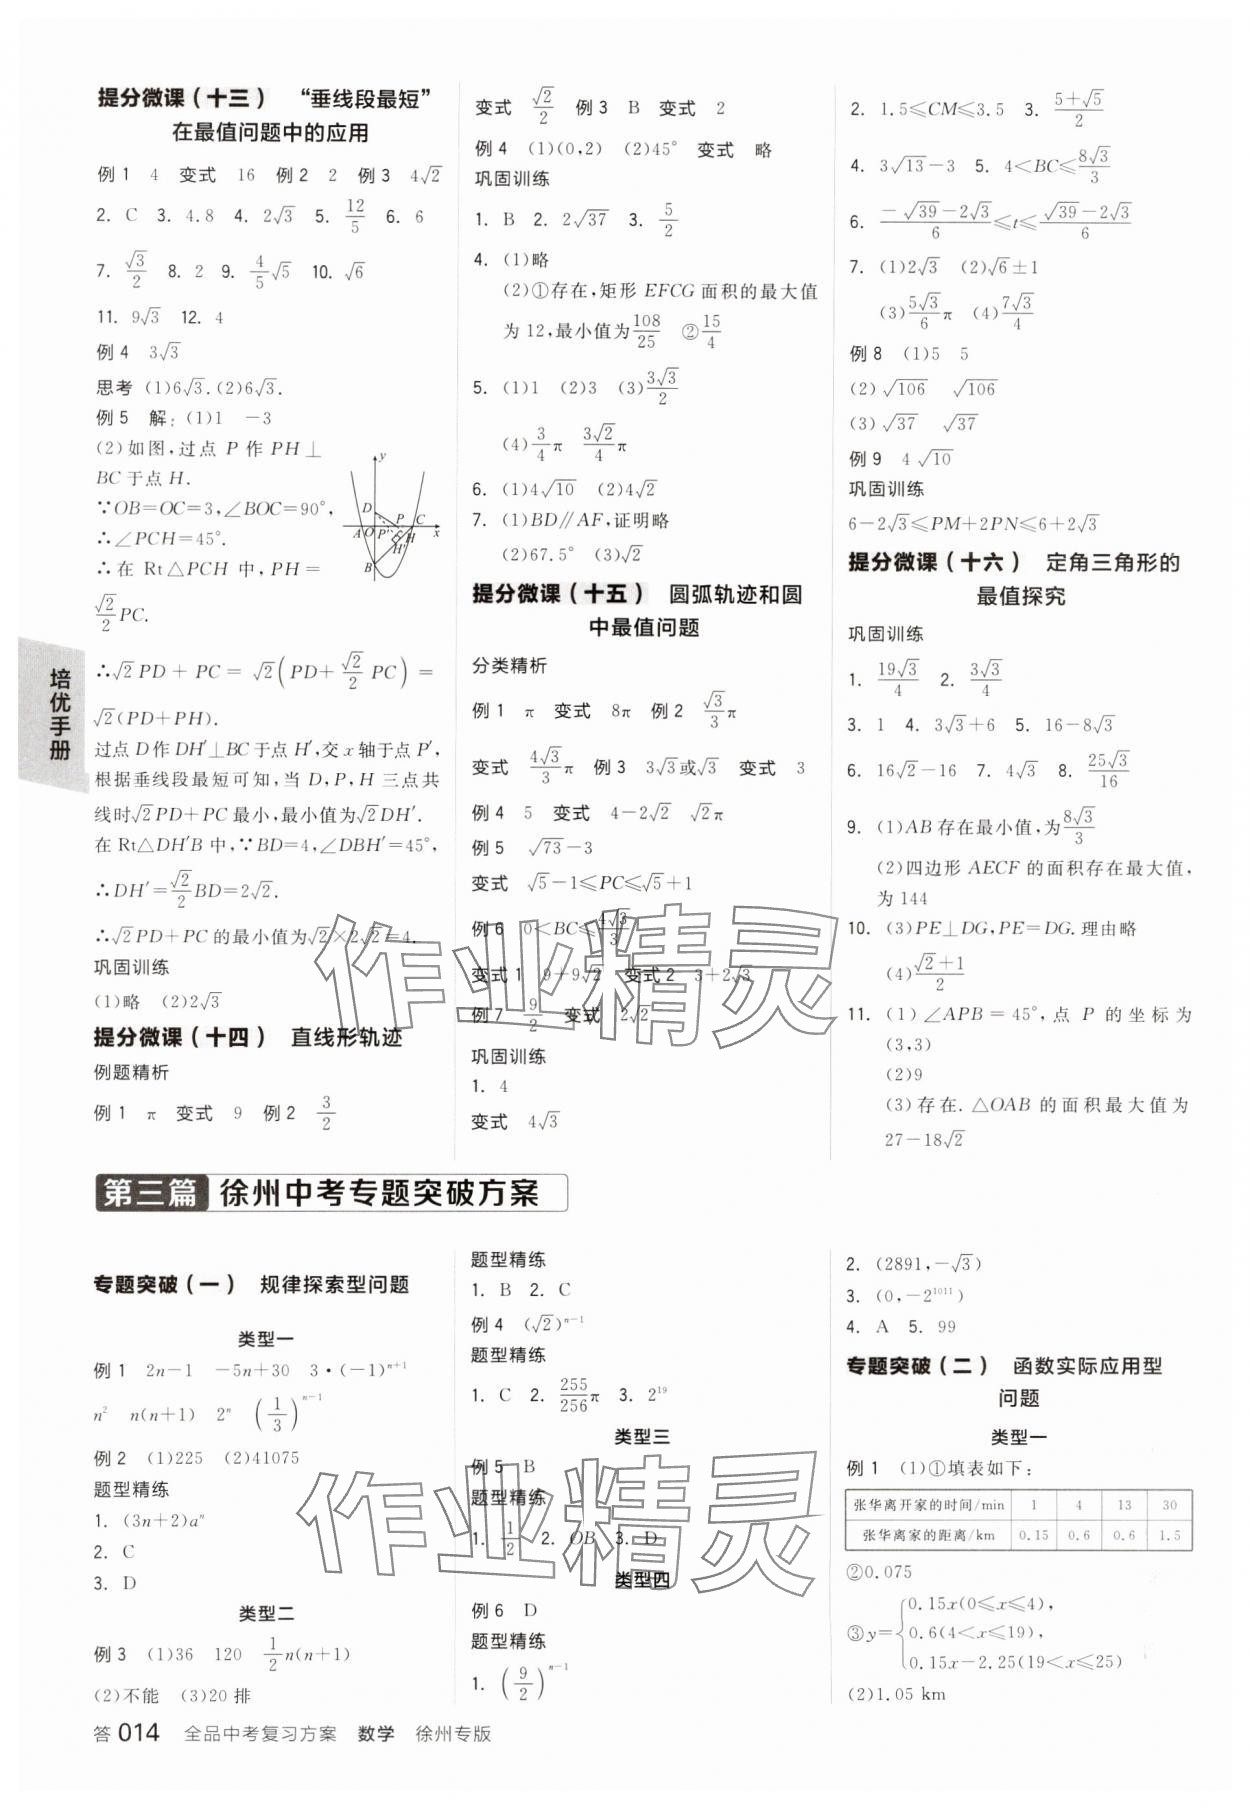 提分微课(十三) “垂线段最短”
在最值问题中的应用
例1 4 变式 16 例2 2 例3 4√2
2. C 3. 4.8 4. 2√3 5. 12/5 6. 6
7. √3/2 8. 2 9. 4/5√5 10. √6
11. 9√3 12. 4
例4 3√3
思考 (1)6√3.(2)6√3.
例5 解:(1)1 -3
(2)如图,过点 P 作 PH⊥
BC于点 H.
∵OB=OC=3,∠BOC=90°,
∴∠PCH=45°.
∴在 Rt△PCH 中,PH=
√2/2 PC.
∴√2PD+PC=√2(PD+√2/2 PC)=
√2(PD+PH).
过点D作DH′⊥BC于点H′,交x轴于点P′,
根据垂线段最短可知,当 D,P,H 三点共
线时√2PD+PC最小,最小值为√2DH′.
在Rt△DH′B中,∵BD=4,∠DBH′=45°,
∴DH′=√2/2 BD=2√2.
∴√2PD+PC的最小值为√2×2√2=4.
巩固训练
(1)略 (2)2√3
提分微课(十四) 直线形轨迹
例题精析
例1 π 变式 9 例2 3/2
变式 √2/2 例3 B 变式 2
例4 (1)(0,2) (2)45° 变式 略
巩固训练
1. B 2. 2√37 3. 5/2
4. (1)略
(2)①存在,矩形 EFCG 面积的最大值
为12,最小值为108/25 ②15/4
5. (1)1 (2)3 (3)3√3/2
(4)3/4π 3√2/4π
6. (1)4√10 (2)4√2
7. (1)BD∥AF,证明略
(2)67.5° (3)√2
提分微课(十五) 圆弧轨迹和圆
中最值问题
分类精析
例1 π 变式 8π 例2 √3/3π
变式 4√3/3π 例3 3√3或√3 变式 3
例4 5 变式 4-2√2 √2π
例5 √73-3
变式 √5-1≤PC≤√5+1
例6 0<BC≤4√3/3
变式1 9+9√2 变式2 3+2√3
例7 9/2 变式 2√2
巩固训练
1. 4
变式 4√3
2. 1.5≤CM≤3.5 3. (5+√5)/2
4. 3√13-3 5. 4<BC≤8√3/3
6. (-√39-2√3)/6≤t≤(√39-2√3)/6
7. (1)2√3 (2)√6±1
(3)5√3/6π (4)7√3/4
例8 (1)5 5
(2)√106 √106
(3)√37 √37
例9 4√10
巩固训练
6-2√3≤PM+2PN≤6+2√3
提分微课(十六) 定角三角形的
最值探究
巩固训练
1. 19√3/4 2. 3√3/4
3. 1 4. 3√3+6 5. 16-8√3
6. 16√2-16 7. 4√3 8. 25√3/16
9. (1)AB存在最小值,为8√3/3
(2)四边形 AECF 的面积存在最大值,
为144
10. (3)PE⊥DG,PE=DG.理由略
(4)(√2+1)/2
11. (1)∠APB=45°,点 P 的坐标为
(3,3)
(2)9
(3)存在.△OAB的面积最大值为
27-18√2
培优手册
第三篇 徐州中考专题突破方案
专题突破(一) 规律探索型问题
类型一
例1 2n-1 -5n+30 3·(-1)ⁿ⁺¹
n² n(n+1) 2ⁿ (1/3)ⁿ⁻¹
例2 (1)225 (2)41075
题型精练
1. (3n+2)aⁿ
2. C
3. D
类型二
例3 (1)36 120 1/2n(n+1)
(2)不能 (3)20排
题型精练
1. B 2. C
例4 (√2)ⁿ⁻¹
题型精练
1. C 2. 255/256π 3. 2¹⁹
类型三
例5 B
题型精练
1. 1/2 2. OB 3. D
类型四
例6 D
题型精练
1. (9/2)ⁿ⁻¹
2. (2891,-√3)
3. (0,-2¹⁰¹¹)
4. A 5. 99
专题突破(二) 函数实际应用型
问题
类型一
例1 (1)①填表如下:
张华离开家的时间/min 1 4 13 30
张华离家的距离/km 0.15 0.6 0.6 1.5
②0.075
③y={0.15x(0≤x≤4),
0.6(4<x≤19),
0.15x-2.25(19<x≤25)
(2)1.05 km
答014 全品中考复习方案 数学 徐州专版
作业精灵
作业精灵